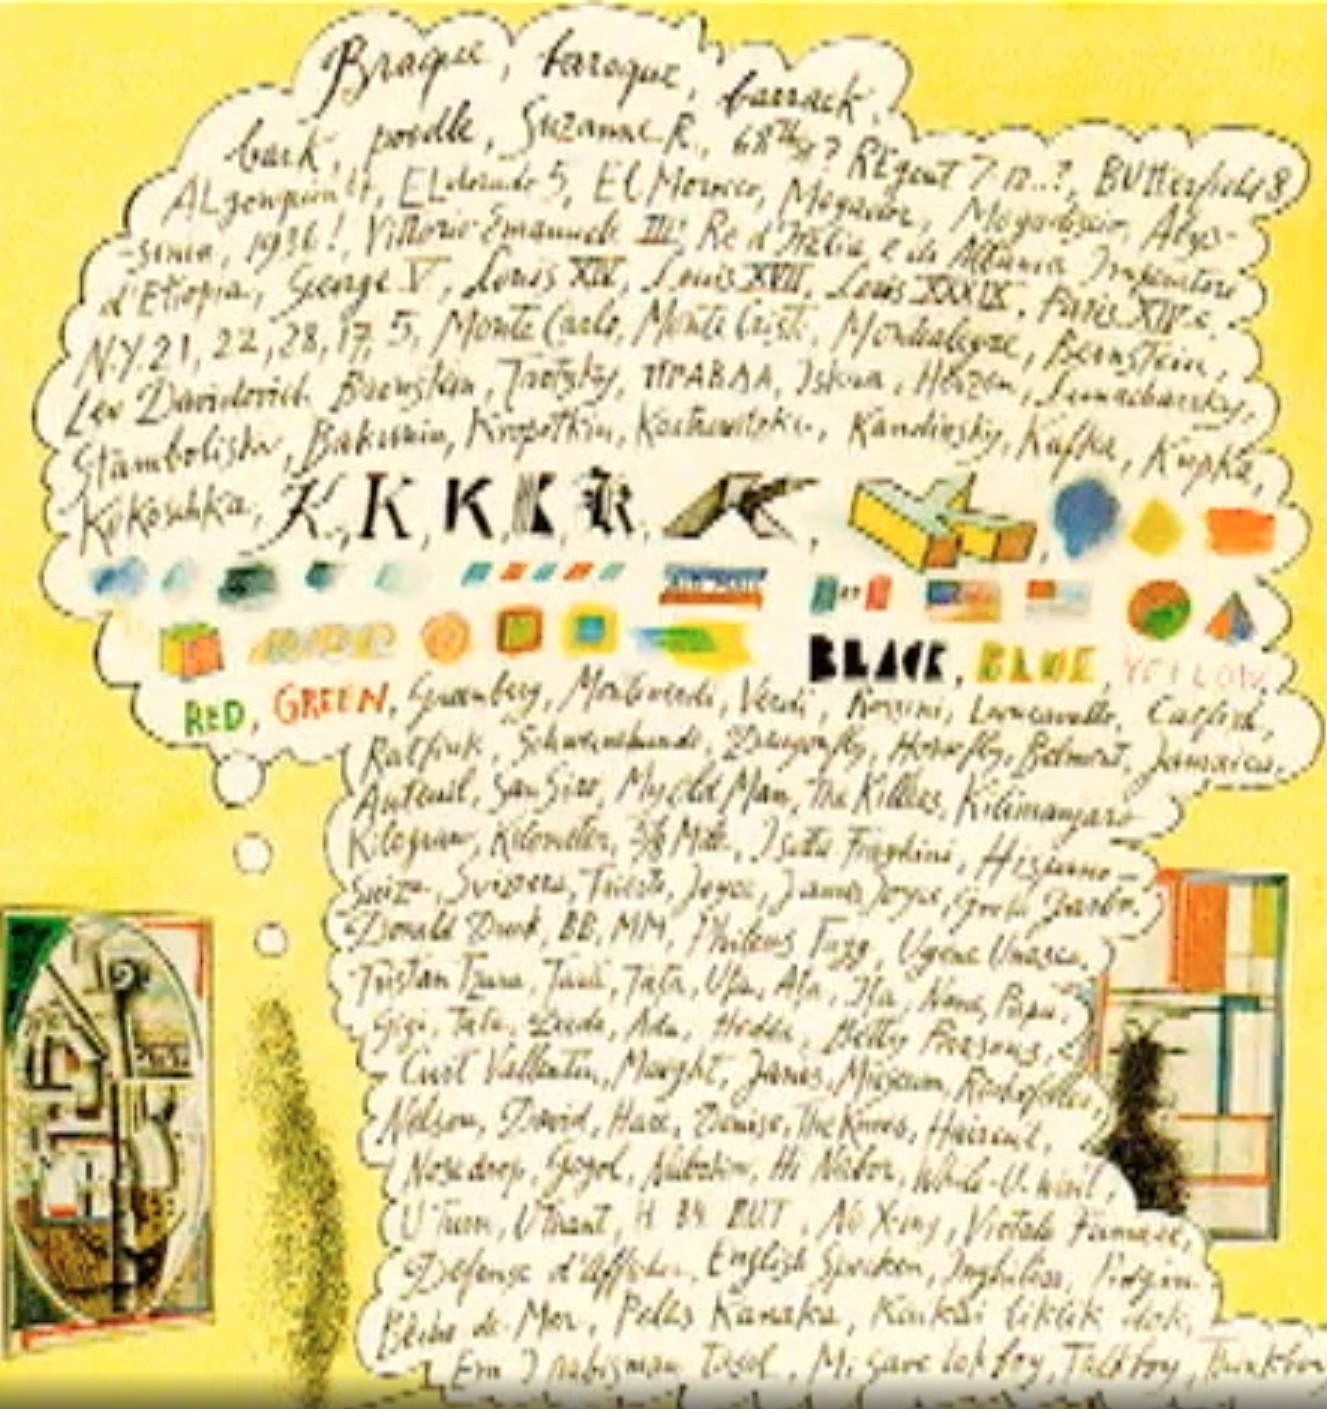 Braque, baroque, barrack,
bark, poodle, Suzanne R., 68th St? REgent 7 12..?, BUtterfield 8
ALgonquin 4, ELdorado 5, El Morocco, Mogador, Mogadiscio, Abys-
sinia, 1936!, Vittorio Emanuele III, Re d'Italia e di Albania Imperatore
d'Etiopia, George V, Louis XIV, Louis XVII, Louis XXXIX, Paris XIVe,
N.Y. 21, 22, 28, 17, 5, Monte Carlo, Monte Cristo, Montealegre, Bernstein,
Lev Davidovich Bronstein, Trotzky, ПРАВДА, Iskra, Herzen, Lunacharsky,
Stambolisky, Bakunin, Kropotkin, Kandinsky, Kafka, Kupka,
Kokoschka, K, K, K, K, K, K,
BLACK, BLUE, YELLOW,
RED, GREEN, Greenberg, Monteverdi, Verdi, Rossini, Leoncavallo, Catfish,
Ratfink, Schweinehunde, Dragonfly, Horsefly, Belmont, Jamaica,
Auteuil, San Siro, My Old Man, The Killers, Kilimanjaro
Kilogram, Kilometer, 3/8 Mile, Isotta Fraschini, Hispano-
Suiza, Svizzera, Trieste, Joyce, James Joyce, Greta Garbo,
Donald Duck, BB, MM, Phileas Fogg, Ugene Unesco,
Tristan Tzara, Tata, Ufa, Ata, Ita, Nana, Papa,
Gigi, Tatu, Ada, Hedda, Betty Parsons,
Curt Vallentin, Maeght, Janis, Museum, Rockefeller,
Nelson, David, Hare, Denise, The Knees, Haircut,
Nosedrop, Gogol, Nabokov, Hi Nabor, While-U-Wait,
U Turn, U Thant, H 84 BUT, No X-ing, Victola Fumare,
Defense d'Afficher, English Spoken, Inghilese, Pidgin
Bêche de Mer, Pelles Kanaka, Kaikai liklik dok,
Em I nabigman tasol, Mi save lok boy, Talk boy,